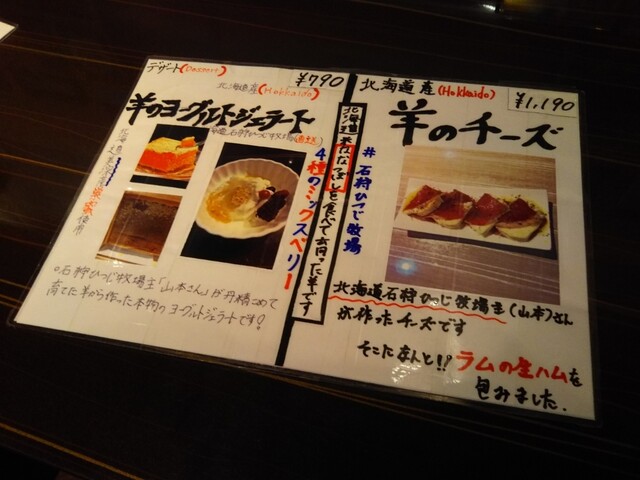 デザート(Dessert)
¥790
北海道産(Hokkaido)
羊のヨーグルトジェラート
石狩ひつじ牧場
4種のミックスベリー
使用
。石狩ひつじ牧場主「山本さん」が丹精こめて
育てた羊から作った本物のヨーグルトジェラートです!
北海道米ななつぼしを食べて育った羊です
北海道産(Hokkaido)
¥1,190
羊のチーズ
井 石狩ひつじ牧場
北海道石狩ひつじ牧場主(山本)さん
が作ったチーズです
そこになんと!! ラムの生ハムを
包みました.